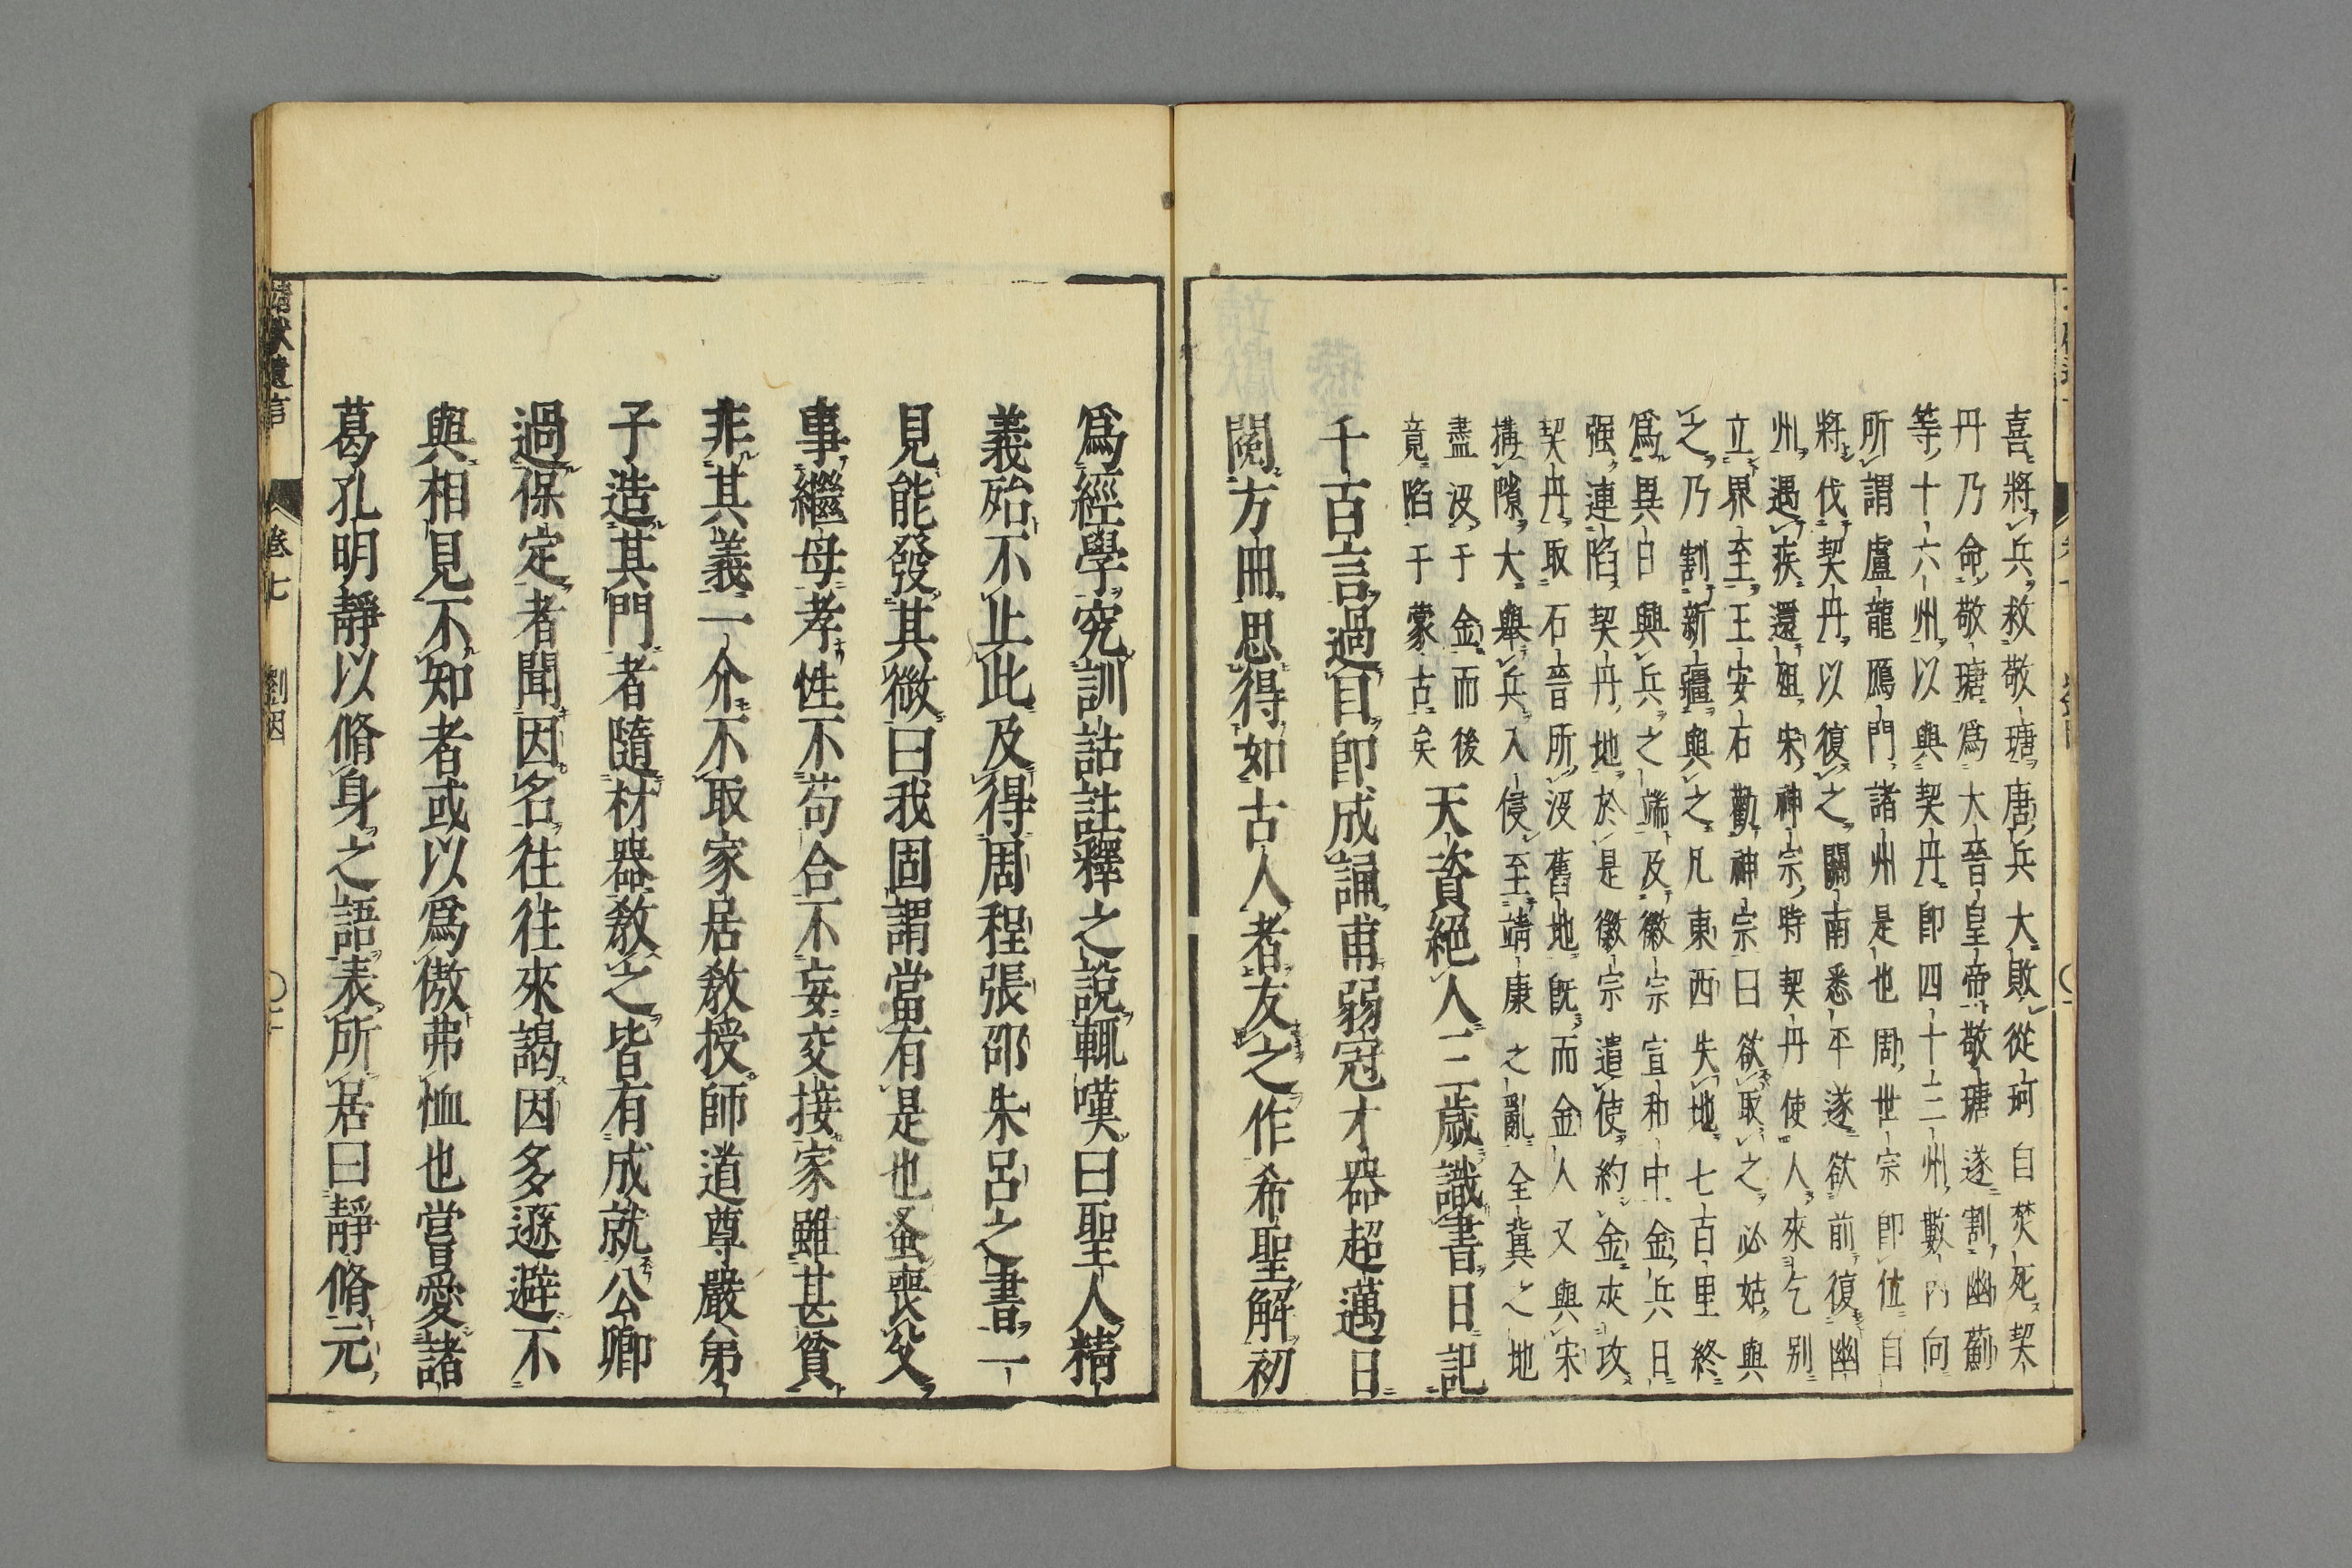 喜將兵救敬瑭唐兵大敗從珂自焚死契
丹乃命敬瑭爲大晉皇帝敬瑭遂割幽薊
等十六州以與契丹即四十二州數內向
所謂盧龍鴈門諸州是也周世宗即位自
將伐契丹以復之關南悉平遂欲前復幽
州遇疾還殂宋神宗時契丹使人來乞别
立界至王安石勸神宗曰欲取之必姑與
之乃割新疆與之凡東西失地七百里終
爲異日興兵之端及徽宗宣和中金兵日
强連陷契丹地於是徽宗遣使約金夾攻
契丹取石晉所没舊地既而金人又與宋
搆隙大舉兵入侵至靖康之亂全冀之地
盡没于金而後
竟陷于蒙古矣
天資絕人三歲識書日記
千百言過目即成誦甫弱冠才器超邁日
閱方冊思得如古人者友之作希聖解初
爲經學究訓詁註釋之說輒嘆曰聖人精
義殆不止此及得周程張邵朱呂之書一
見能發其微曰我固謂當有是也蚤喪父
事繼母孝性不苟合不妄交接家雖甚貧
非其義一介不取家居教授師道尊嚴弟
子造其門者隨材器教之皆有成就公卿
過保定者聞因名往往來謁因多遜避不
與相見不知者或以爲傲弗恤也嘗愛諸
葛孔明靜以脩身之語表所居曰靜脩元
靖獻遺言
卷七
劉因